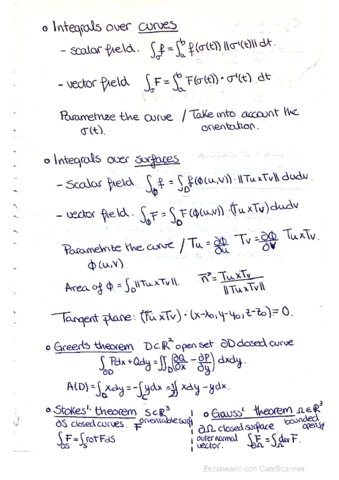 • Integrals over curves
- scalar field. ∫σ f = ∫ₐᵇ f(σ(t)) ||σ'(t)|| dt.
- vector field ∫σ F = ∫ₐᵇ F(σ(t)) · σ'(t) dt
Parametrize the curve / Take into account the
σ(t). orientation.
• Integrals over surfaces
- scalar field ∫ϕ f = ∫D f(ϕ(u,v)) · ||Tu x Tv|| dudv
- vector field. ∫ϕ F = ∫D F(ϕ(u,v)) · (Tu x Tv) dudv
Parametrite the curve / Tu = ∂ϕ/∂u Tv = ∂ϕ/∂v Tu x Tv
ϕ(u,v)
Area of ϕ = ∫D ||Tu x Tv||. n⃗ = Tu x Tv / ||Tu x Tv||
Tangent plane: (Tu x Tv) · (x-x₀, y-y₀, z-z₀) = 0.
• Green's theorem D⊂ℝ² open set ∂D closed curve
∫∂D Pdx + Qdy = ∬D (∂Q/∂x - ∂P/∂y) dxdy.
A(D) = ∫ xdy = -∫ ydx = ½∫ xdy - ydx.
• Stokes' theorem S⊂ℝ³
∂S closed curves. F orientable surf
∫∂S F = ∫S rot F dS
• Gauss' theorem Ω∈ℝ³
∂Ω closed surface bounded
outer normal open
vector. ∫∂Ω F = ∫Ω div F.
Escaneado con CamScanner